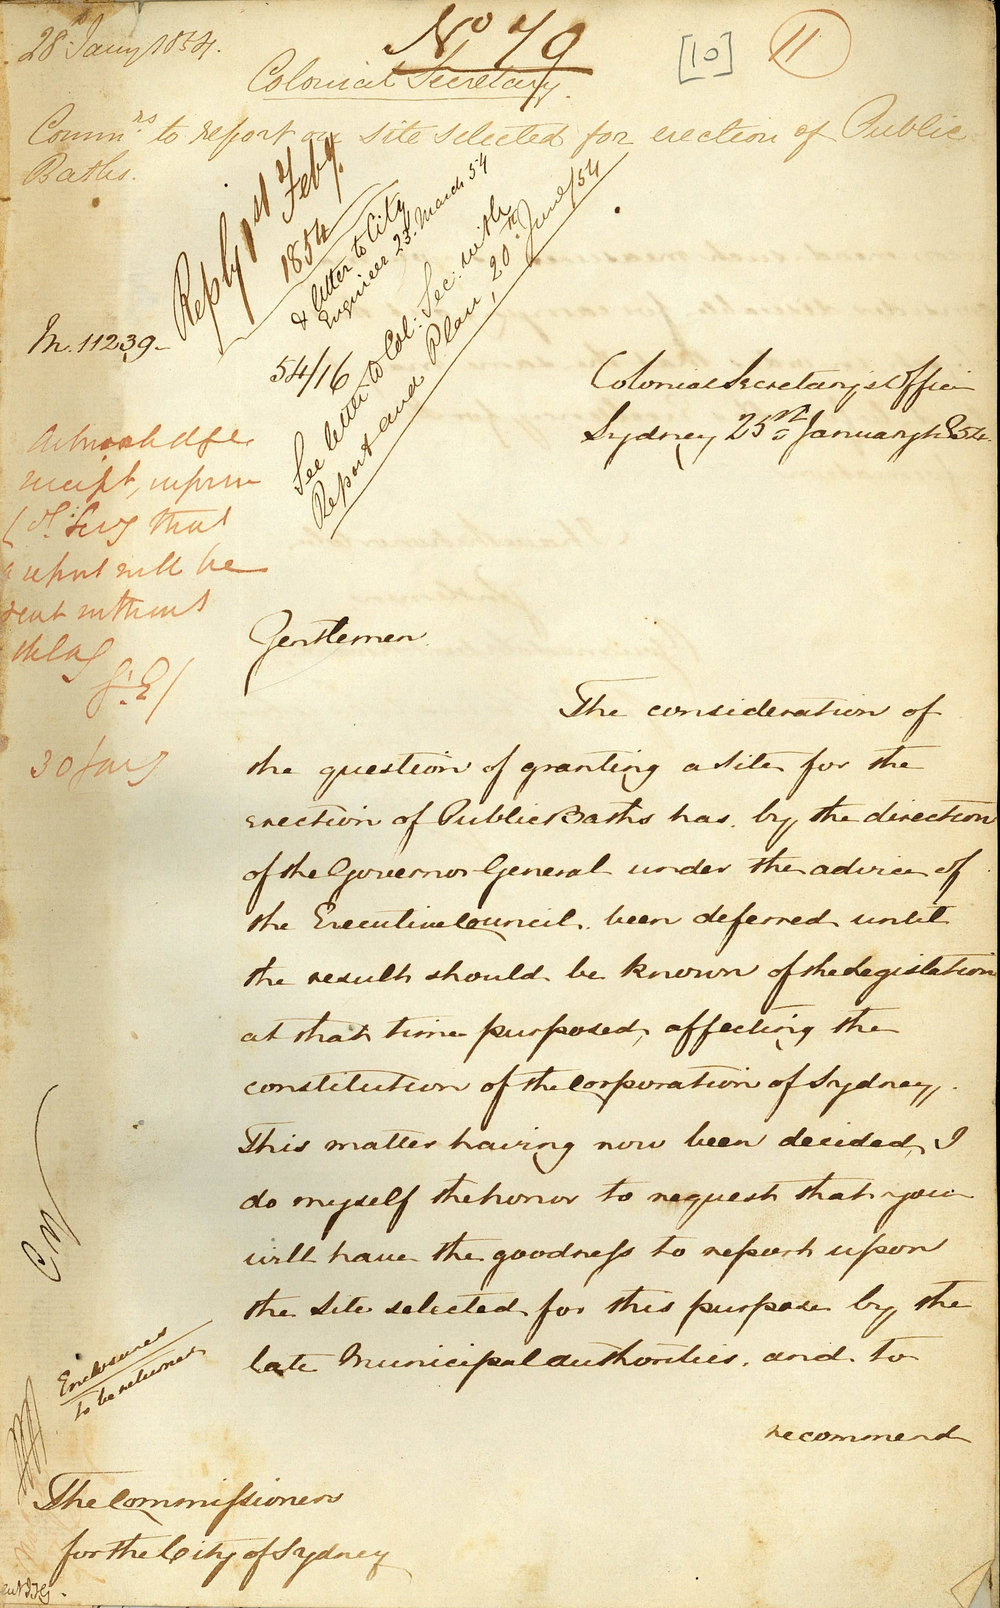 28 Jany 1854.
No 79
[10]
11
Colonial Secretary.
Commrs to report on site selected for erection of Public
Baths.
Reply 1st Feby.
1854
& letter to City
Engineer 23d. March 54
54/16
See letter to Col: Sec: with
Report and Plan, 20th June/54
M. 11239-
Colonial Secretary's Office
Sydney 25th January 1854.
Acknowledge
receipt, inform
Cl. Secy that
a report will be
sent without
delay
G. E/
30 Jany
Gentlemen.
The consideration of
the question of granting a site for the
erection of Public Baths has, by the direction
of the Governor General under the advice of
the Executive Council, been deferred until
the result should be known of the legislation
at that time purposed, affecting the
constitution of the Corporation of Sydney.
This matter having now been decided, I
do myself the honor to request that you
will have the goodness to report upon
the site selected for this purpose by the
late Municipal authorities, and to
recommend
Enclosures
to be returned
The Commissioners
for the City of Sydney